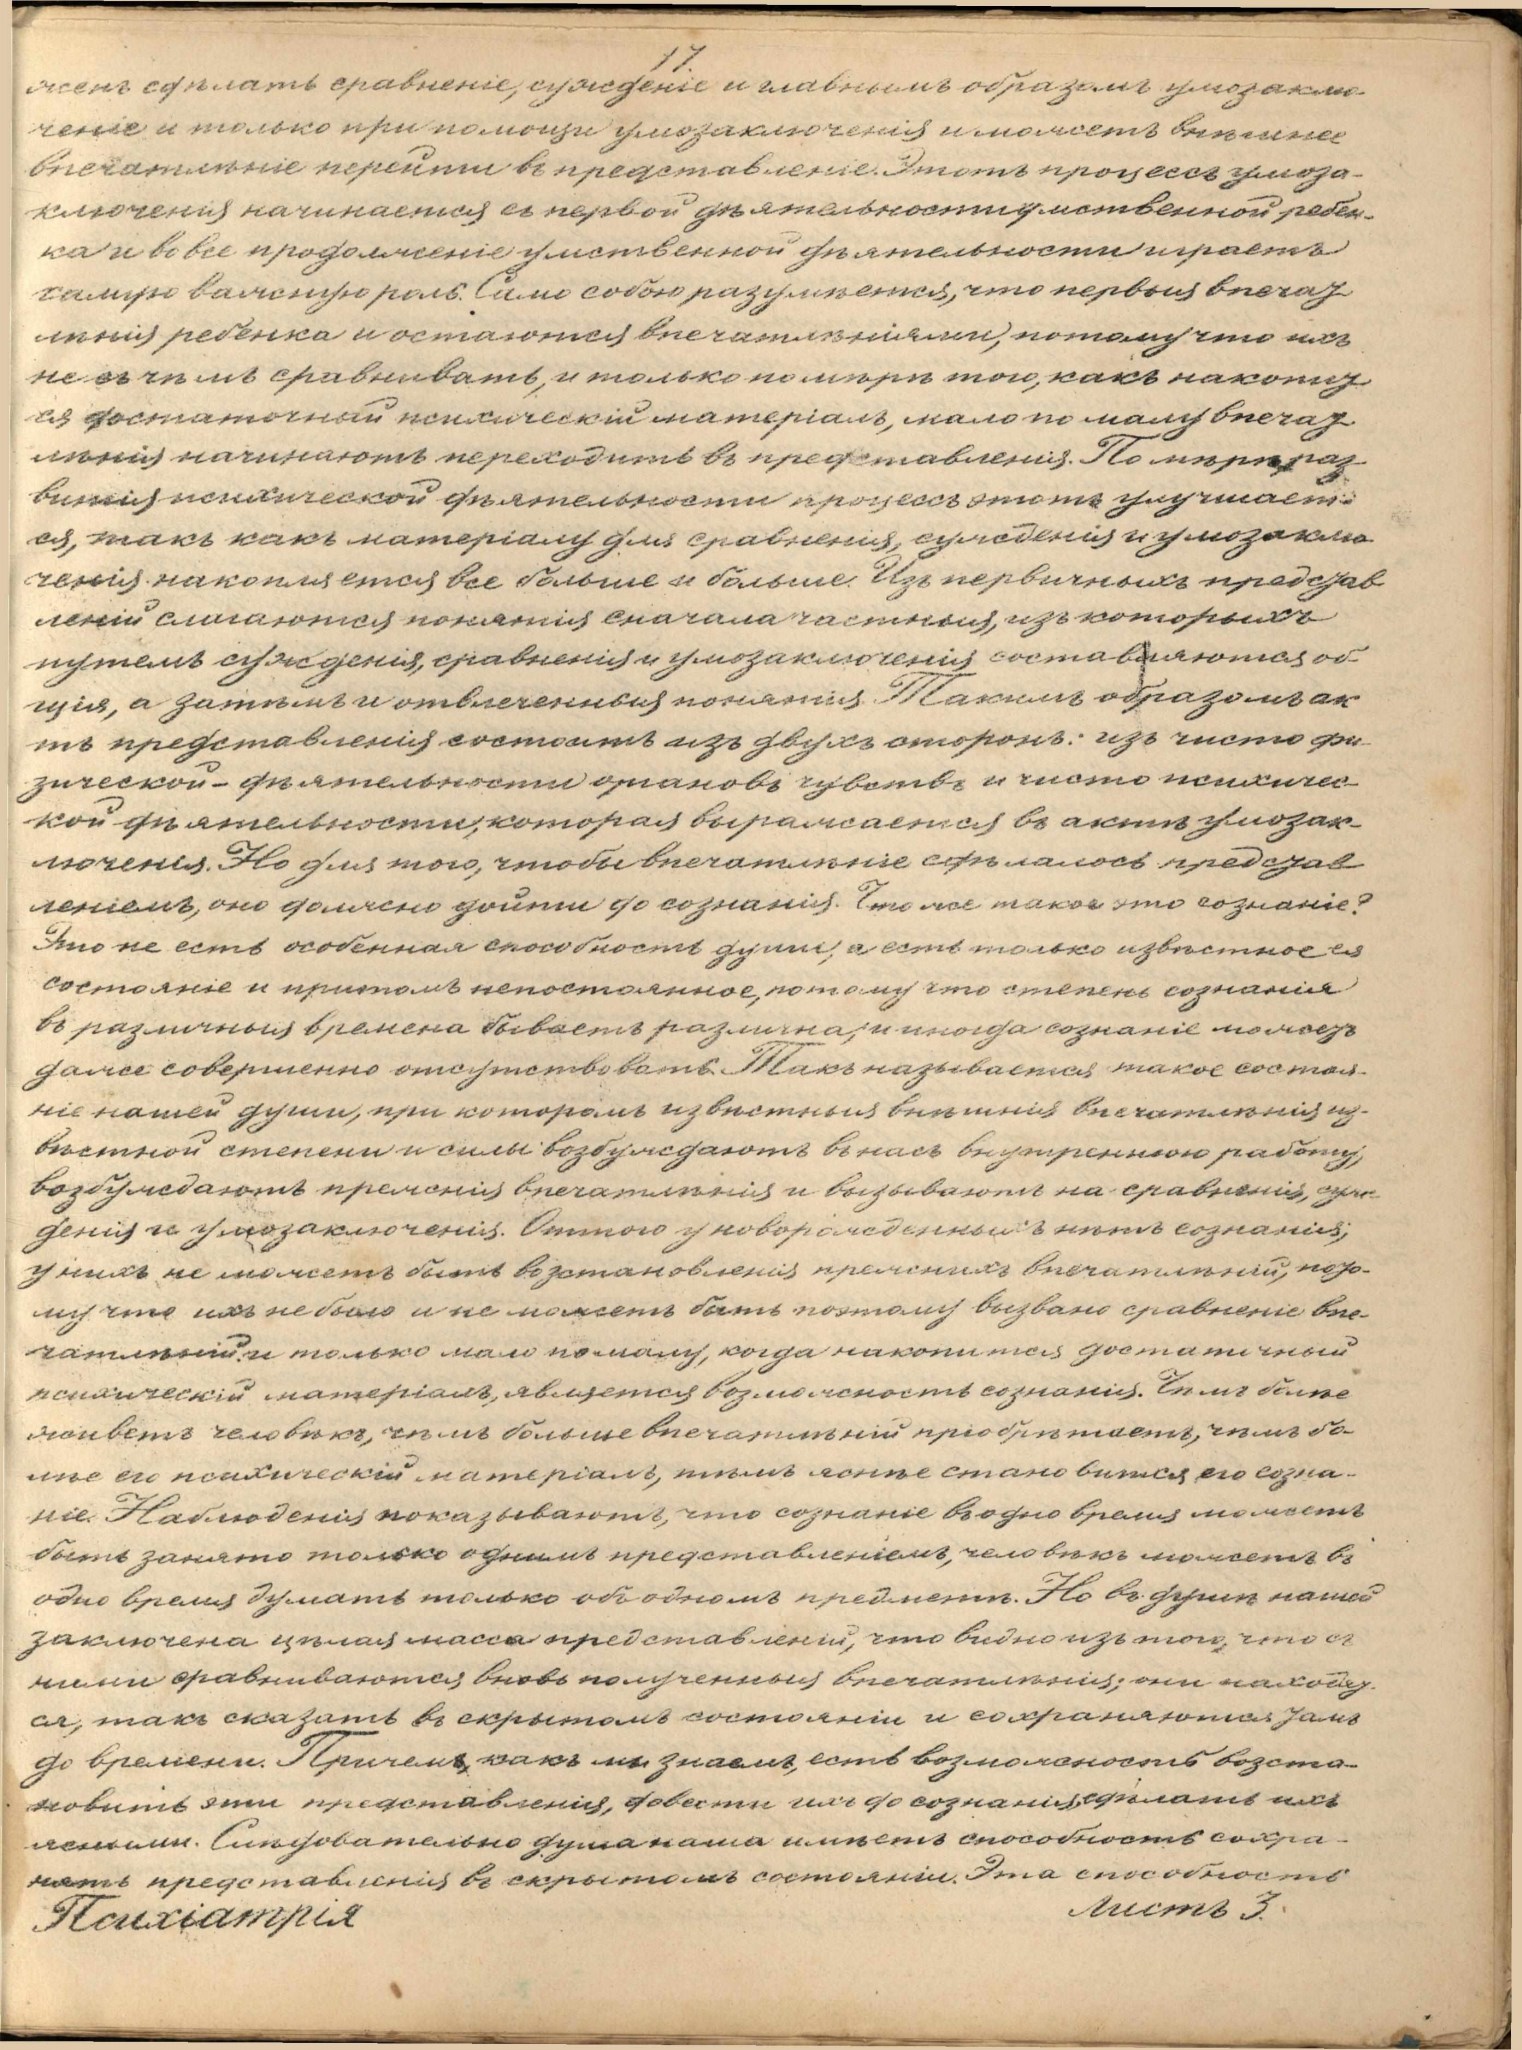 17.
женъ сдѣлать сравненіе, сужденіе и главнымъ образомъ умозаклю-
ченіе и только при помощи умозаключенія и можетъ внѣшнее
впечатлѣніе перейти въ представленіе. Этотъ процессъ умоза-
ключенія начинается съ первой дѣятельности умственной ребен-
ка и во все продолженіе умственной дѣятельности играетъ
самую важную роль. Само собою разумѣется, что первыя впечат
лѣнія ребенка и остаются впечатлѣніями, потому что ихъ
не съ чѣмъ сравнивать, и только по мѣрѣ того, какъ накопит
ся достаточный психическій матеріалъ, мало по малу впечат
лѣнія начинаютъ переходить въ представленія. По мѣрѣ раз
витія психической дѣятельности процессъ этотъ улучшает-
ся, такъ какъ матеріалу для сравненія, сужденія и умозаклю
ченія накопляется все больше и больше. Изъ первичныхъ представ
леній слагаются понятія сначала частныя, изъ которыхъ
путемъ сужденія, сравненія и умозаключенія составляются об-
щія, а затѣмъ и отвлеченныя понятія. Такимъ образомъ ак
тъ представленія состоитъ изъ двухъ сторонъ: изъ чисто фи-
зической - дѣятельности органовъ чувствъ и чисто психичес-
кой дѣятельности, которая выражается въ актѣ умозак-
люченія. Но для того, чтобы впечатлѣніе сдѣлалось представ
леніемъ, оно должно дойти до сознанія. Что же такое это сознаніе?
Это не есть особенная способность души, а есть только извѣстное ея
состояніе и притомъ непостоянное, потому что степень сознанія
въ различныя времена бываетъ различна, и иногда сознаніе можетъ
даже совершенно отсутствовать. Такъ называется такое состоя-
ніе нашей души, при которомъ извѣстныя внѣшнія впечатлѣнія из-
вѣстной степени и силы возбуждаютъ въ насъ внутреннюю работу,
возбуждаютъ прежнія впечатлѣнія и вызываютъ на сравненія, суж-
денія и умозаключенія. Оттого у новорожденныхъ нѣтъ сознанія;
у нихъ не можетъ быть возстановленія прежнихъ впечатлѣній, пото-
му что ихъ не было и не можетъ быть поэтому вызвано сравненіе впе-
чатлѣній и только мало по малу, когда накопится достаточный
психическій матеріалъ, является возможность сознанія. Чѣмъ болѣе
живетъ человѣкъ, чѣмъ больше впечатлѣній пріобрѣтаетъ, чѣмъ бо-
лѣе его психическій матеріалъ, тѣмъ яснѣе становится его созна-
ніе. Наблюденія показываютъ, что сознаніе въ одно время можетъ
быть занято только однимъ представленіемъ, человѣкъ можетъ въ
одно время думать только объ одномъ предметѣ. Но въ душѣ нашей
заключена цѣлая масса представленій, что видно изъ того, что съ
ними сравниваются вновь полученныя впечатлѣнія; они находят
ся, такъ сказать въ скрытомъ состояніи и сохраняются тамъ
до времени. Причемъ, какъ мы знаемъ, есть возможность возста-
новить эти представленія, довести ихъ до сознанія, сдѣлать ихъ
ясными. Слѣдовательно душа наша имѣетъ способность сохра-
нять представленія въ скрытомъ состояніи. Эта способность
Психіатрія
Листъ 3.